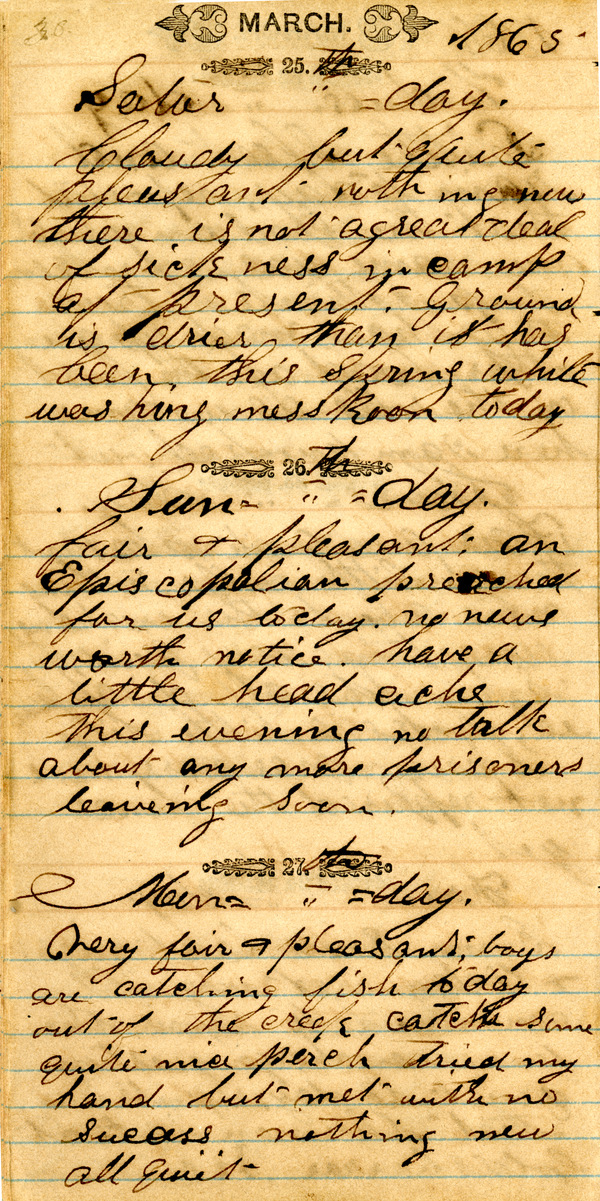 MARCH. 1865
25.th
Satur " =day.
Cloudy but quite
pleasant nothing new
there is not agreat deal
of sickness in camp
at present. Ground
is drier than it has
been this spring white
washing messRoom today
26.th
Sun= " =day.
fair & pleasant; an
Episcopalian preached
for us today. no news
worth notice. have a
little head ache
this evening no talk
about any more prisoners
leaveing soon.
27.th
Mon= " =day.
Very fair & pleasant; boys
are catching fish today
out of the creek catch some
quite nice perch tried my
hand but met with no
sucess nothing new
all quiet